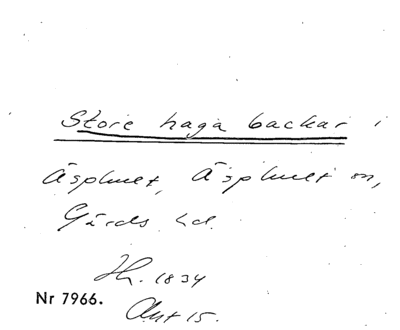 Store haga backar i
Äsphult, Äsphult sn,
Gärds hd.
Hh. 1834
Nr 7966.
Akt 15.